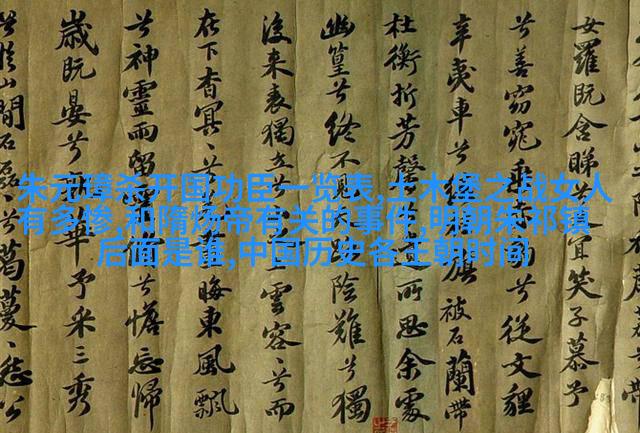 朱元璋杀开国功臣一览表,土木堡之战女人
有多惨,和隋炀帝有关的事件,明朝朱祁镇
后面是谁,中国历史各王朝时间
女羅既含睇宜笑子慕予
兮善窈窕乘兮從文貍
辛夷車兮旗被石蘭帶
杜衡折芳馨所思余處
幽篁兮終不難兮獨
後來表獨立雲容容兮而
在下杳冥晦東風飄
兮神靈雨留兮憺忘歸
歲既晏兮華予采三秀
山間石磊葛蔓怨公